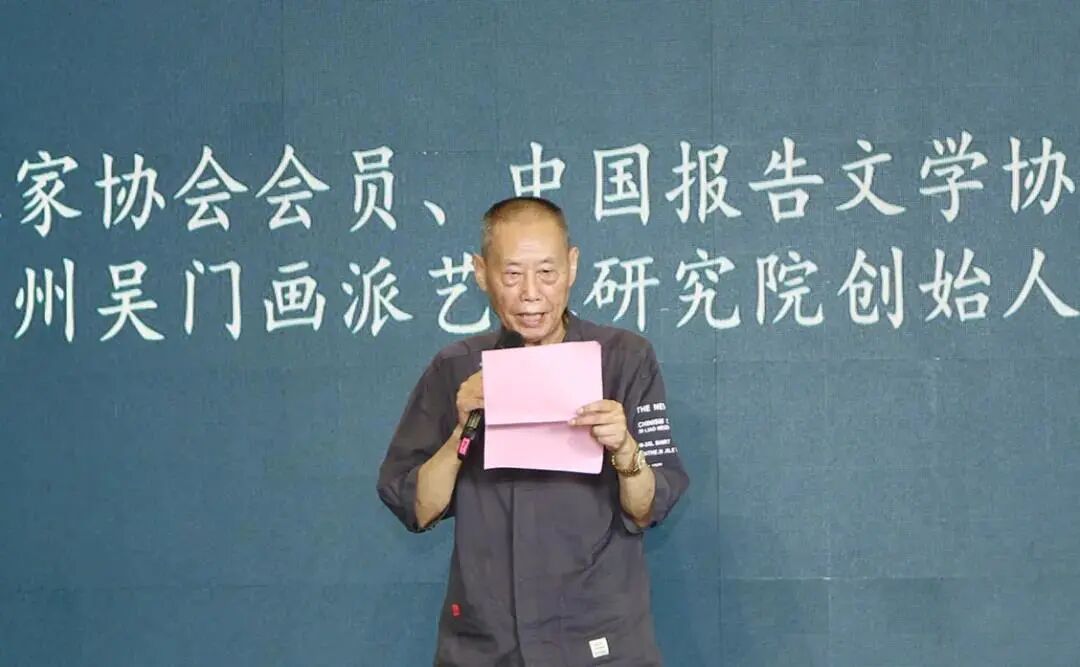 家协会会员、中国报告文学协
州吴门画派艺 研究院创始人
THE NE